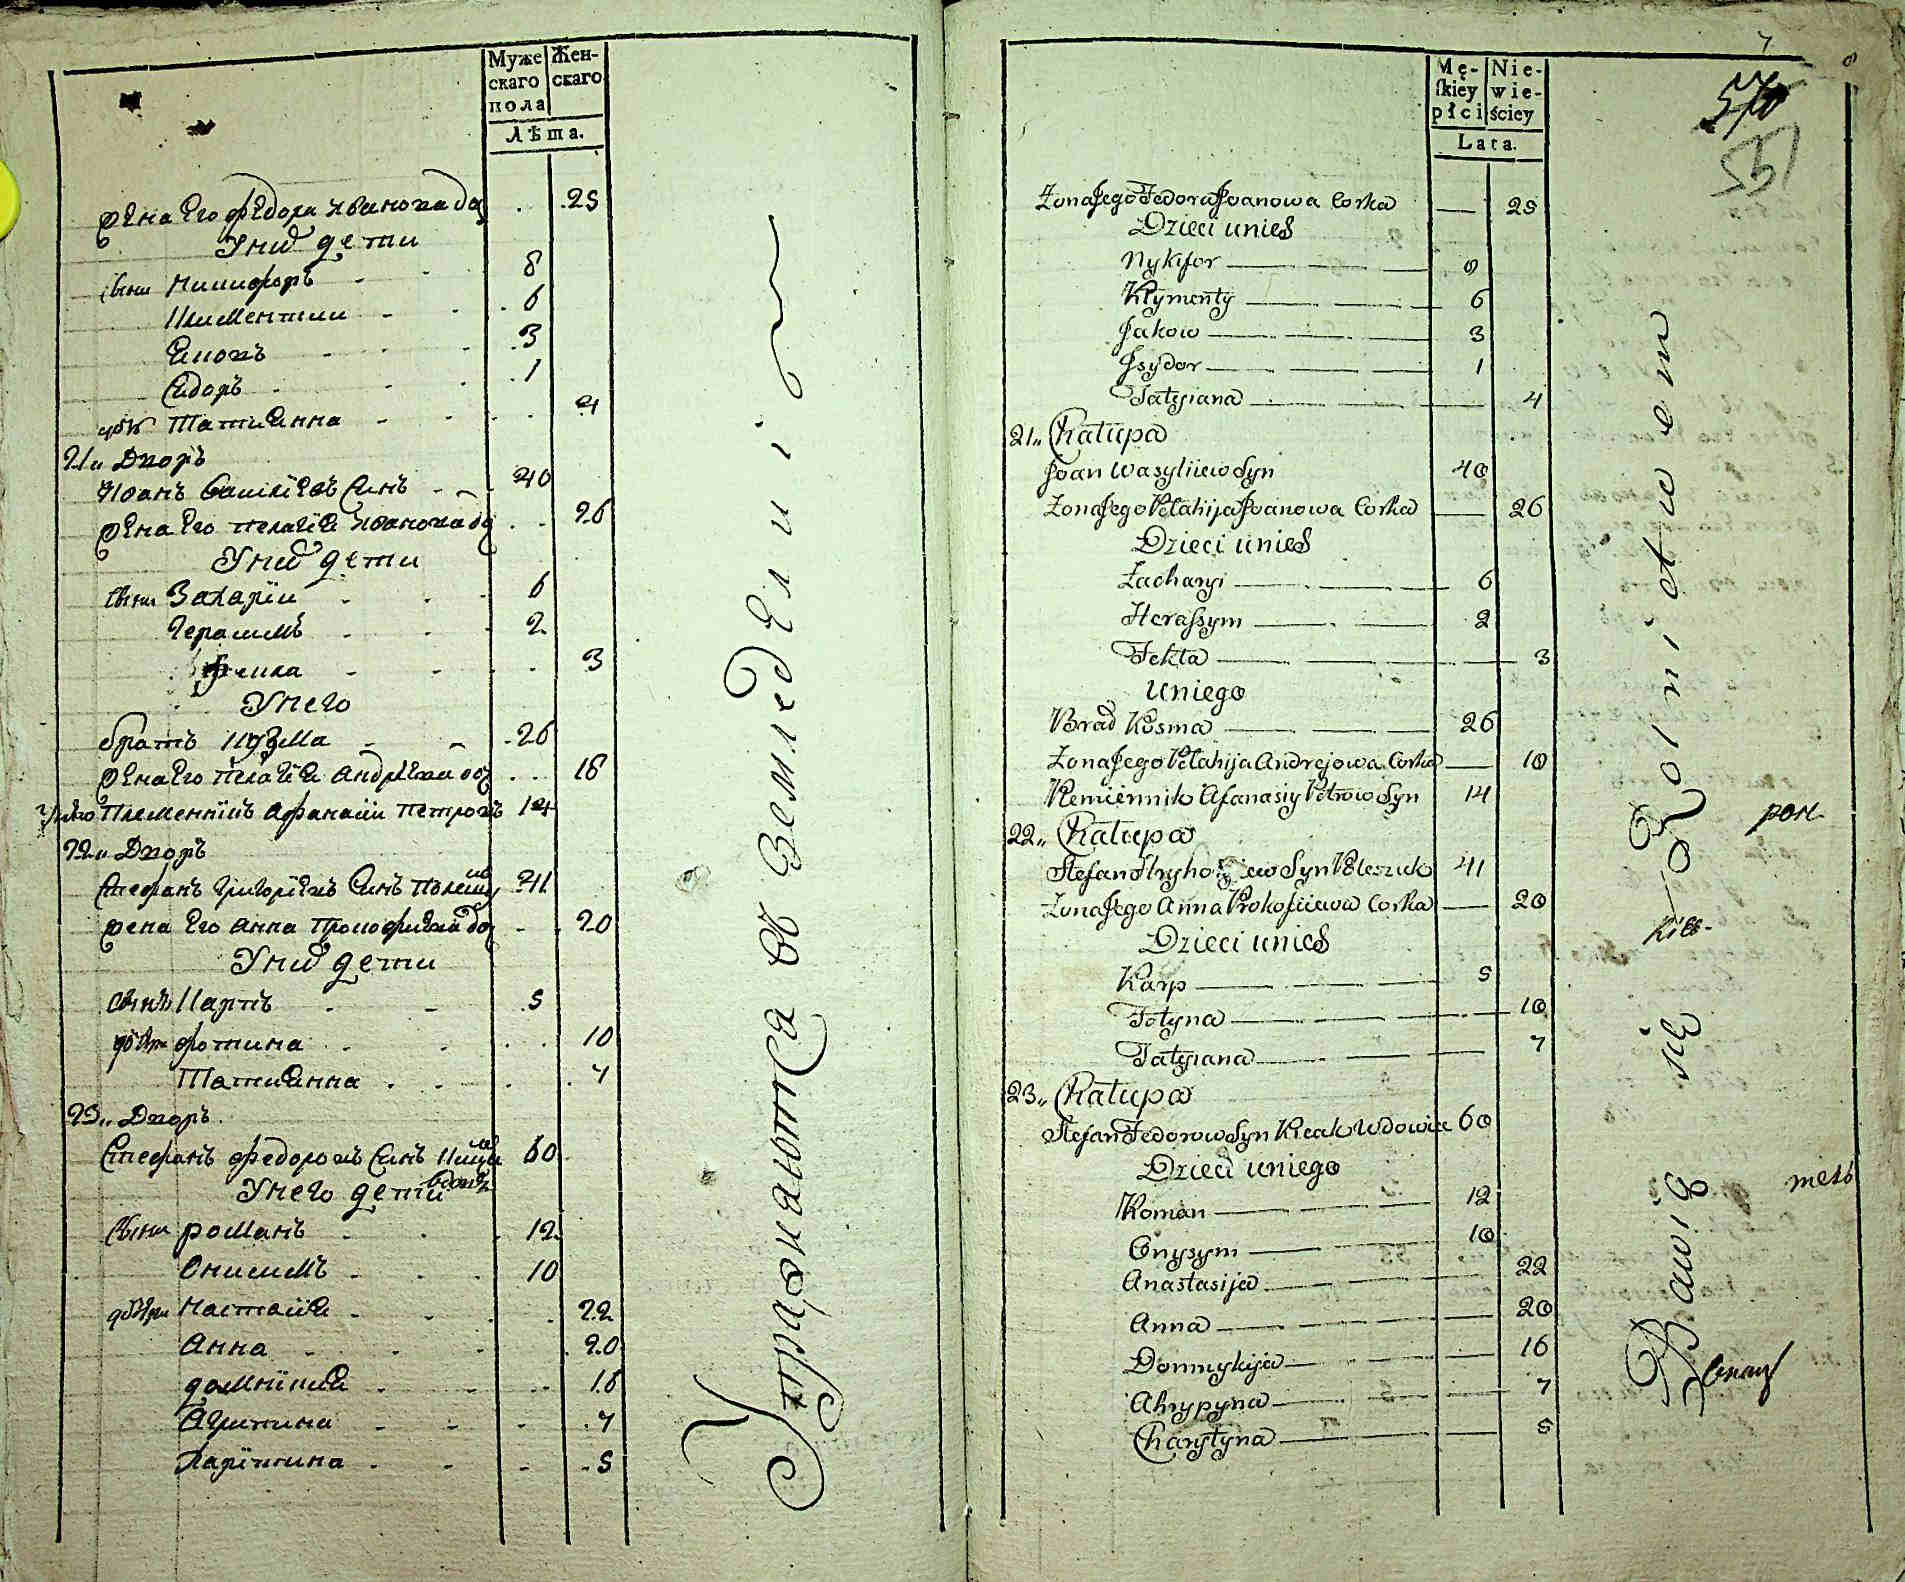 Муже
скаго
пола
Жен-
скаго
Лѣта.
жена Его федора Иванова до 25
У них дети
сыни Никифоръ 8
Климентии 6
Еноχъ 3
Сидоръ 1
Татиянна 4
21 „ Дворъ
Иоанъ Василиевъ Синъ 40
жена Его Пелагия Иванова до 26
У них дети
сыни Захарiи 6
Герасимъ 2
Фекла 3
У него
братъ Кузма 26
жена Его Пелагия Андреева до 18
Племенникъ Афанасiи Петровъ 14
22 „ Дворъ
Стефанъ Григориевъ Синъ 41
жена Его Анна Прокофиева до 20
У них дети
сынъ Карпъ 5
фотина 10
Татиянна 7
23 „ Дворъ
Стефанъ федоровъ Синъ 60
У него дети
сыни романъ 12
Онисимъ 10
Настасiя 22
Анна 20
домникия 16
Агрипина 7
Харитина 5
Упражняются въ Земледелиi
Mę-
skiey
płci
Nie-
wie-
ściey
Lata.
570
551
Żona Jego Fedora Jwanowa Corka 25
Dzieci unich
Nykifor 8
Kłymenty 6
Jakow 3
Jsydor 1
Tatyiana 4
21 „ Chałupa
Joan Wasyliiew Syn 40
Żona Jego Pełahija Jwanowa Corka 26
Dzieci unich
Zacharyi 6
Herassym 2
Fekła 3
Uniego
Brad Kosma 26
Żona Jego Pełahija Andrejowa Corka 18
Plemiennik Afanasiy Petrow Syn 14
22 „ Chałupa
Stefan Hryhorjew Syn Poleszuk 41
Żona Jego Anna Prokofiiewa Corka 20
Dzieci unich
Karp 5
Fotyna 10
Tatyiana 7
23 „ Chałupa
Stefan Fedorow Syn Udowiec 60
Dzieci uniego
Roman 12
Onysym 10
Anastasija 22
Anna 20
Domnykija 16
Ahrypyna 7
Charytyna 5
Bawią się Rolnictwem